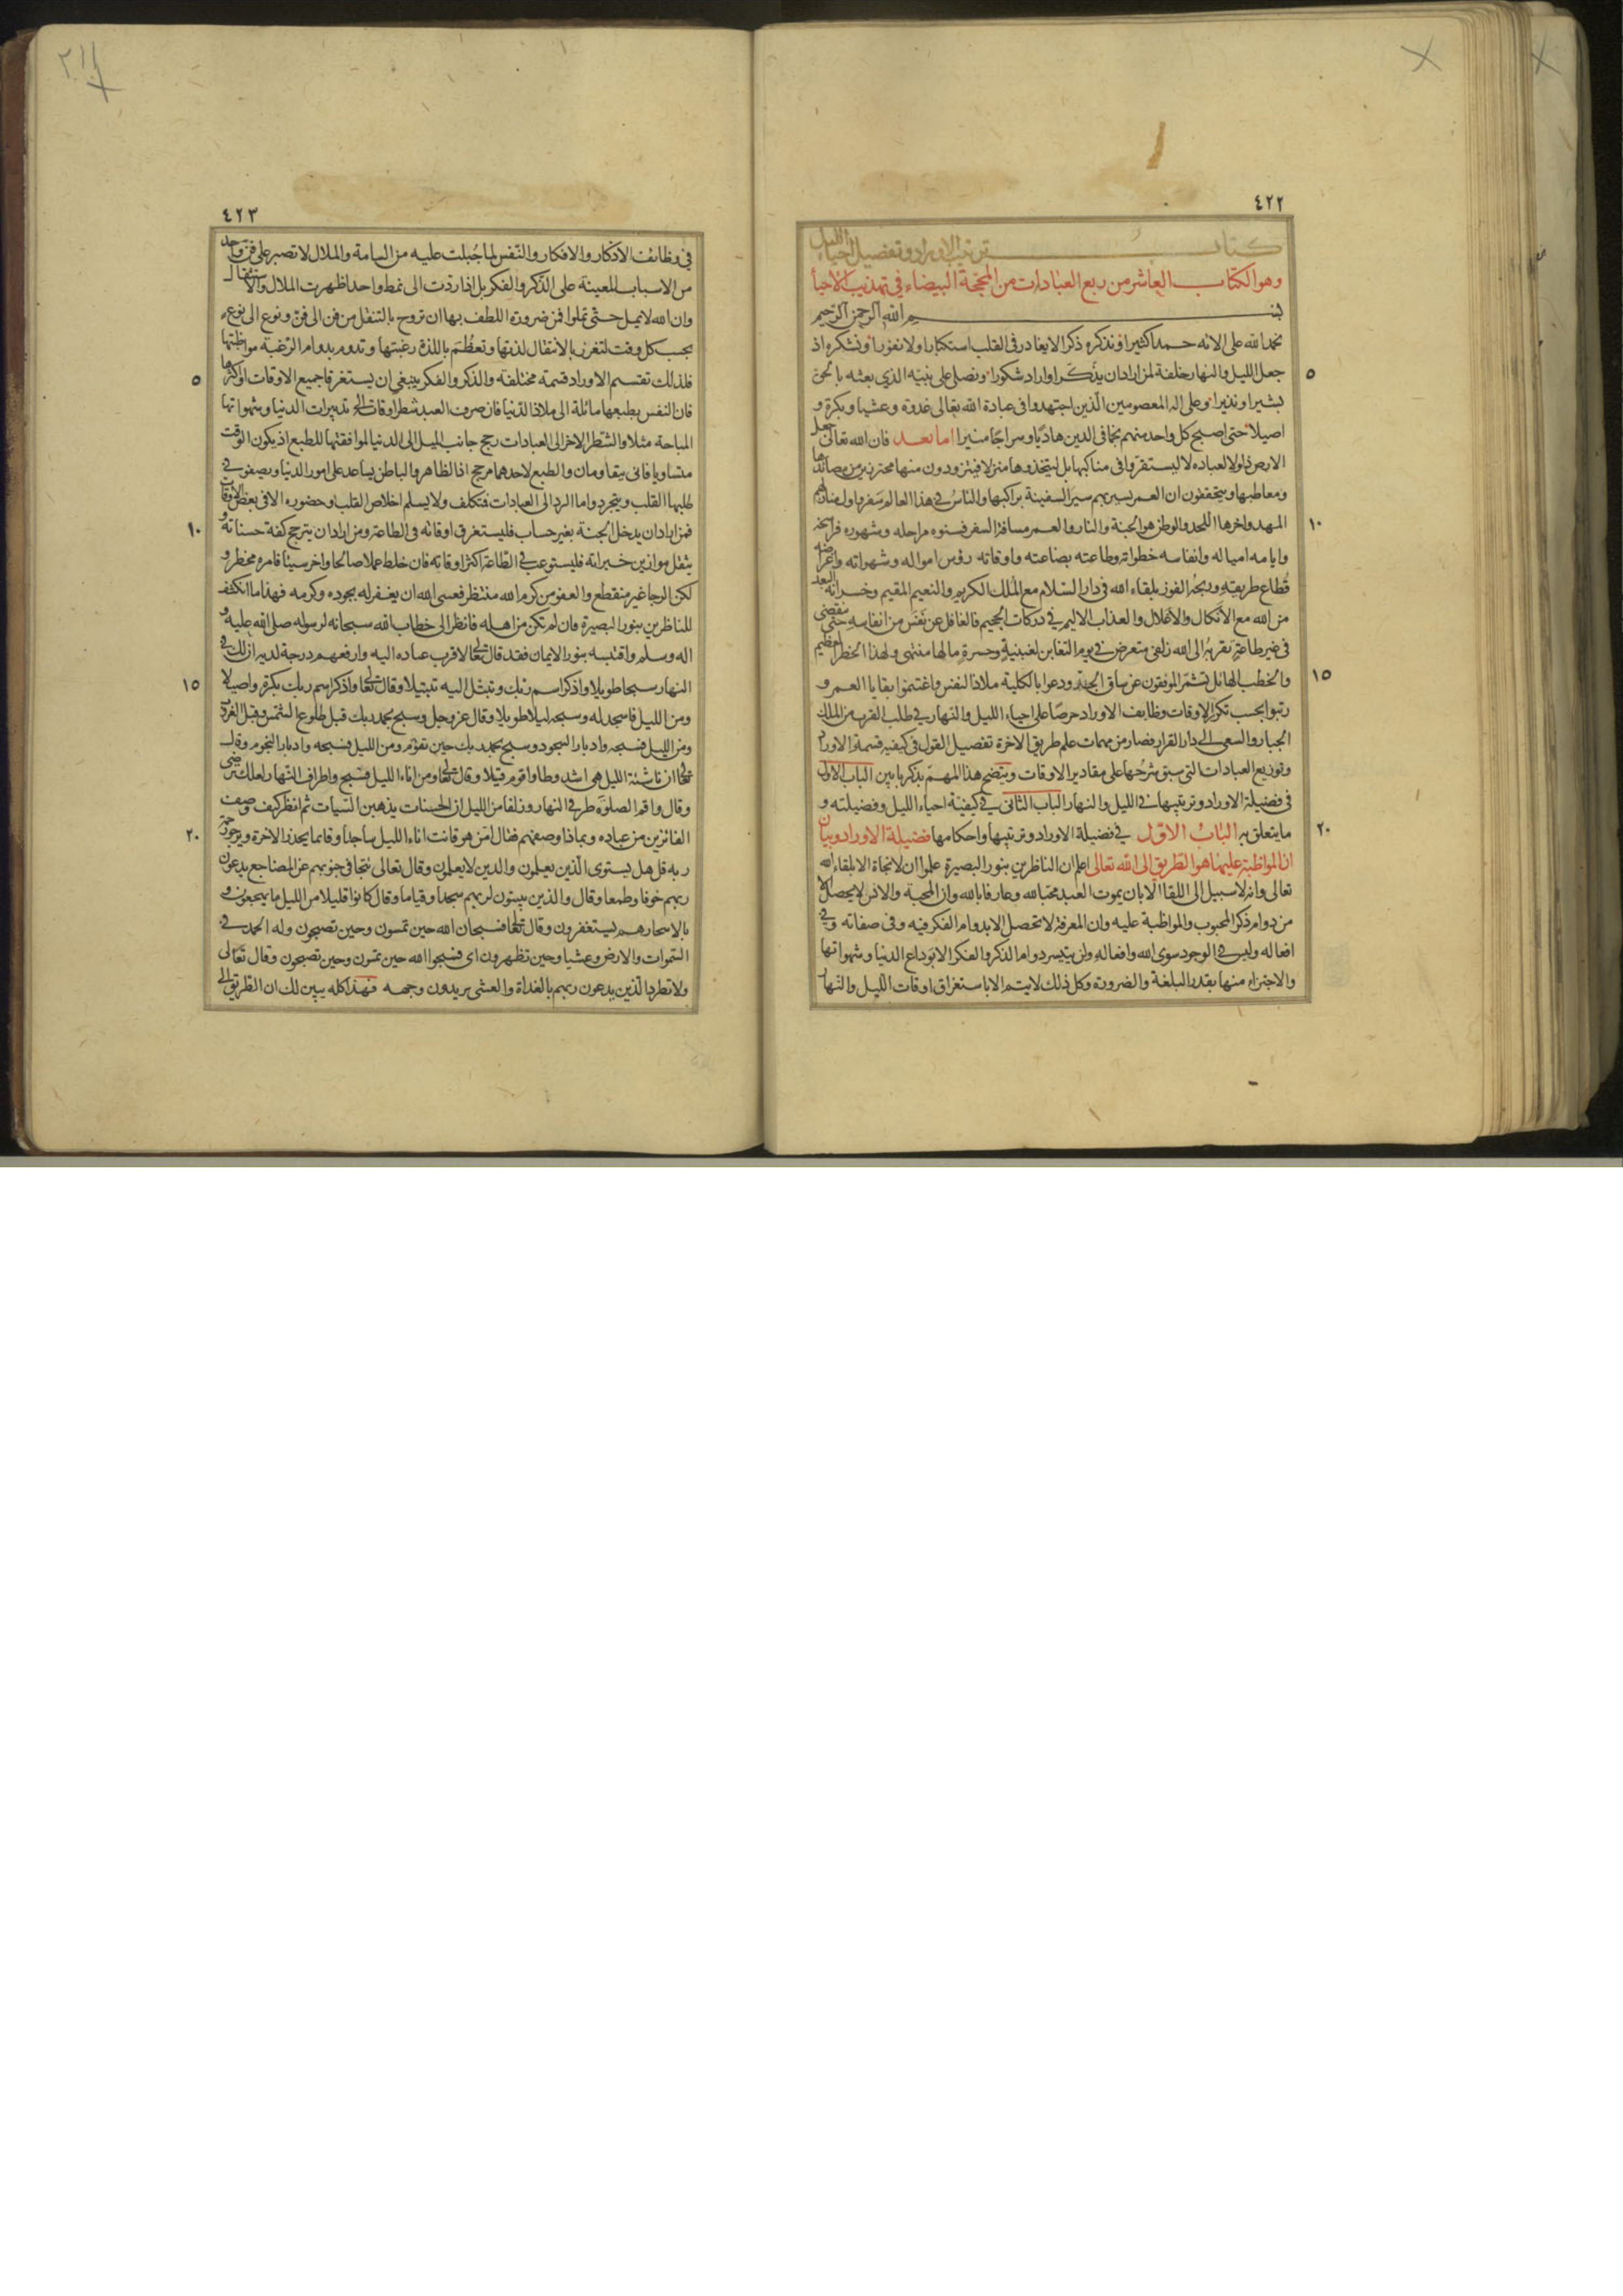 ٤٢٢
كتاب ترتيب الاوراد وتفصيل احياء الليل
وهو الكتاب العاشر من ربع العبادات من المحجة البيضاء فى تهذيب الاحياء
بسم الله الرحمن الرحيم
نحمد الله على الائه حمدا كثيرا ونذكره ذكرا لا يغادر فى القلب استكبارا ولا نفورا ونشكره اذ
جعل الليل والنهار خلفة لمن اراد ان يذكر او اراد شكورا ونصلى على نبيه الذى بعثه بالحق
بشيرا ونذيرا وعلى اله المعصومين الذين اجتهدوا فى عبادة الله تعالى غدوة وعشيا وبكرة و
اصيلا حتى اصبح كل واحد منهم نجما فى الدين هاديا وسراجا منيرا اما بعد فان الله تعالى جعل
الارض ذلولا لعباده لا ليستقروا فى مناكبها بل ليتخذوها منزلا فيتزودون منها محترزين من مصائدها
ومعاطبها ويتحققون ان العمر يسير بهم سير السفينة براكبها والناس فى هذا العالم سفر واول منازلهم
المهد واخرها اللحد والوطن هو الجنة والنار والعمر مسافة السفر فسنوه مراحله وشهوره فراسخه
وايامه امياله وانفاسه خطواته وطاعته بضاعته واوقاته رؤس امواله وشهواته واغراضه
قطاع طريقه وربحه الفوز بلقاء الله فى دار السلام مع الملك الكريم والنعيم المقيم وخسرانه البعد
من الله مع الانكال والاغلال والعذاب الاليم فى دركات الجحيم فالغافل عن نفس من انفاسه حتى ينقضى
فى غير طاعة تقربه الى الله زلفى متعرض فى يوم التغابن لغبينة وحسرة ما لها منتهى ولهذا الخطر العظيم
والخطب الهائل تشمر الموفقون عن ساق الجد وودعوا بالكلية ملاذ النفس واغتنموا بقايا العمر و
رتبوا بحسب تكرر الاوقات وظايف الاوراد حرصا على احياء الليل والنهار فى طلب القرب من الملك
الجبار والسعى الى دار القرار فصار من مهمات علم طريق الاخرة تفصيل القول فى كيفية قسمة الاوراد
وتوزيع العبادات التى سبق شرحها على مقادير الاوقات ويتضح هذا المهم بذكر بابين الباب الاول
فى فضيلة الاوراد وترتيبها فى الليل والنهار الباب الثانى فى كيفية احياء الليل وفضيلته و
ما يتعلق به الباب الاول فى فضيلة الاوراد وترتيبها واحكامها فضيلة الاوراد وبيان
ان المواظبة عليها هو الطريق الى الله تعالى اعلم ان الناظرين بنور البصيرة علموا ان لا نجاة الا بلقاء الله
تعالى وانه لا سبيل الى اللقا الا بان يموت العبد محبا لله وعارفا بالله وان المحبة والانس لا يحصل الا
من دوام ذكر المحبوب والمواظبة عليه وان المعرفة لا تحصل الا بدوام الفكر فيه وفى صفاته وفى
افعاله وليس فى الوجود سوى الله وافعاله ولن يتيسر دوام الذكر والفكر الا بوداع الدنيا وشهواتها
والاجتزاء منها بقدر البلغة والضرورة وكل ذلك لا يتم الا باستغراق اوقات الليل والنهار
٥
١٠
١٥
٢٠
٤٢٣
فى وظائف الاذكار والافكار والنفس لما جبلت عليه من السامة والملال لا تصبر على فن واحد
من الاسباب المعينة على الذكر والفكر بل اذا ردت الى نمط واحد اظهرت الملال والاستثقال
وان الله لا يمل حتى تملوا فمن ضرورة اللطف بها ان تروح بالتنقل من فن الى فن ونوع الى نوع
بحسب كل وقت لتغزر بالانتقال لذتها وتعظم باللذة رغبتها وتدوم بدوام الرغبة مواظبتها
فلذلك تقسم الاوراد قسمة مختلفة والذكر والفكر ينبغى ان يستغرقا جميع الاوقات او اكثرها
فان النفس بطبعها مائلة الى ملاذ الدنيا فان صرف العبد شطر اوقاته الى تدبيرات الدنيا وشهواتها
المباحة مثلا والشطر الاخر الى العبادات رجح جانب الميل الى الدنيا لموافقتها للطبع اذ يكون الوقت
متساويا فانى يتقاومان والطبع لاحدهما مرجح اذ الظاهر والباطن يساعد على امور الدنيا ويصفو فى
طلبها القلب ويتجرد واما الرد الى العبادات فتكلف ولا يسلم اخلاص القلب وحضوره الا فى بعض الاوقات
فمن اراد ان يدخل الجنة بغير حساب فليستغرق اوقاته فى الطاعة ومن اراد ان يترجح كفة حسناته و
يثقل موازين خيراته فليستوعب فى الطاعة اكثر اوقاته فان خلط عملا صالحا واخر سيئا فامره مخطر و
لكن الرجا غير منقطع والعفو من كرم الله منتظر فعسى الله ان يغفر له بجوده وكرمه فهذا ما انكشف
للناظرين بنور البصيرة فان لم تكن من اهله فانظر الى خطاب الله سبحانه لرسوله صلى الله عليه و
اله وسلم واقتبسه بنور الايمان فقد قال تعالى لاقرب عباده اليه وارفعهم درجة لديه ان لك فى
النهار سبحا طويلا واذكر اسم ربك وتبتل اليه تبتيلا وقال تعالى واذكر اسم ربك بكرة واصيلا
ومن الليل فاسجد له وسبحه ليلا طويلا وقال عز وجل وسبح بحمد ربك قبل طلوع الشمس وقبل الغروب
ومن الليل فسبحه وادبار السجود وسبح بحمد ربك حين تقوم ومن الليل فسبحه وادبار النجوم وقال
تعالى ان ناشئة الليل هى اشد وطا واقوم قيلا وقال تعالى ومن اناء الليل فسبح واطراف النهار لعلك ترضى
وقال واقم الصلوة طرفى النهار وزلفا من الليل ان الحسنات يذهبن السيات ثم انظر كيف وصف
الفائزين من عباده وبماذا وصفهم فقال امن هو قانت اناء الليل ساجدا وقائما يحذر الاخرة ويرجو رحمة
ربه قل هل يستوى الذين يعلمون والذين لا يعلمون وقال تعالى تتجافى جنوبهم عن المضاجع يدعون
ربهم خوفا وطمعا وقال والذين يبيتون لربهم سجدا وقياما وقال كانوا قليلا من الليل ما يهجعون و
بالاسحار هم يستغفرون وقال تعالى فسبحان الله حين تمسون وحين تصبحون وله الحمد فى
السموات والارض وعشيا وحين تظهرون اى فسبحوا الله حين تمسون وحين تصبحون وقال تعالى
ولا تطرد الذين يدعون ربهم بالغداة والعشى يريدون وجهه فهذا كله يبين لك ان الطريق الى
٥
١٠
١٥
٢٠